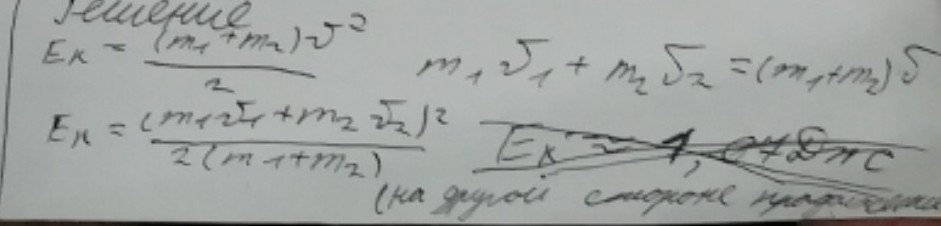 Решение
Eк = (m₁+m₂)v²/2
m₁v₁ + m₂v₂ = (m₁+m₂)v
Eк = (m₁v₁+m₂v₂)²/2(m₁+m₂)
Eк = 1,07Дж
(на другой стороне продолжение